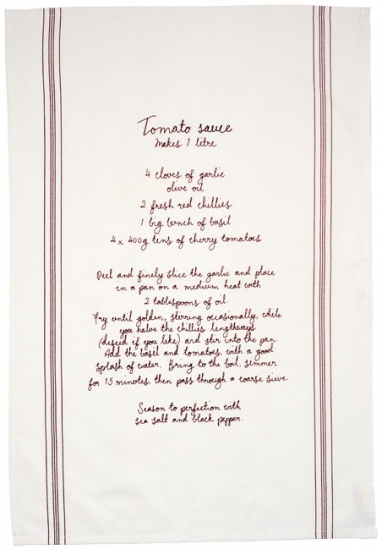 Tomato sauce
Makes 1 litre
4 cloves of garlic
olive oil
2 fresh red chillies
1 big bunch of basil
4 x 400g tins of cherry tomatoes
Peel and finely slice the garlic and place
in a pan on a medium heat with
2 tablespoons of oil.
Fry until golden, stirring occasionally, while
you halve the chillies lengthways
(deseed if you like) and stir into the pan.
Add the basil and tomatoes, with a good
splash of water. Bring to the boil, simmer
for 15 minutes, then pass through a coarse sieve.
Season to perfection with
sea salt and black pepper.